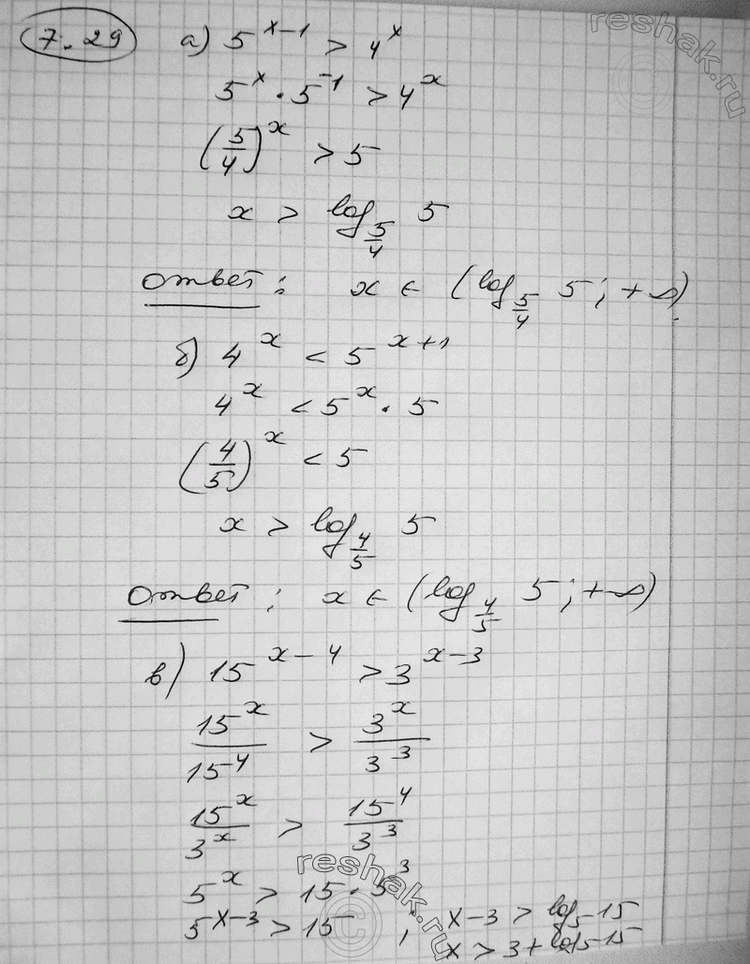 7.29 а) 5^{x-1} > 4^x
5^x · 5^{-1} > 4^x
(5/4)^x > 5
x > log_{5/4} 5
Ответ: x ∈ (log_{5/4} 5; +∞)
б) 4^x < 5^{x+1}
4^x < 5^x · 5
(4/5)^x < 5
x > log_{4/5} 5
Ответ: x ∈ (log_{4/5} 5; +∞)
в) 15^{x-4} > 3^{x-3}
15^x / 15^{-4} > 3^x / 3^3
15^x / 3^x > 15^4 / 3^3
5^x > 15 · 5^3
5^{x-3} > 15 ; x-3 > log_5 15
x > 3 + log_5 15
reshak.ru
reshak.ru